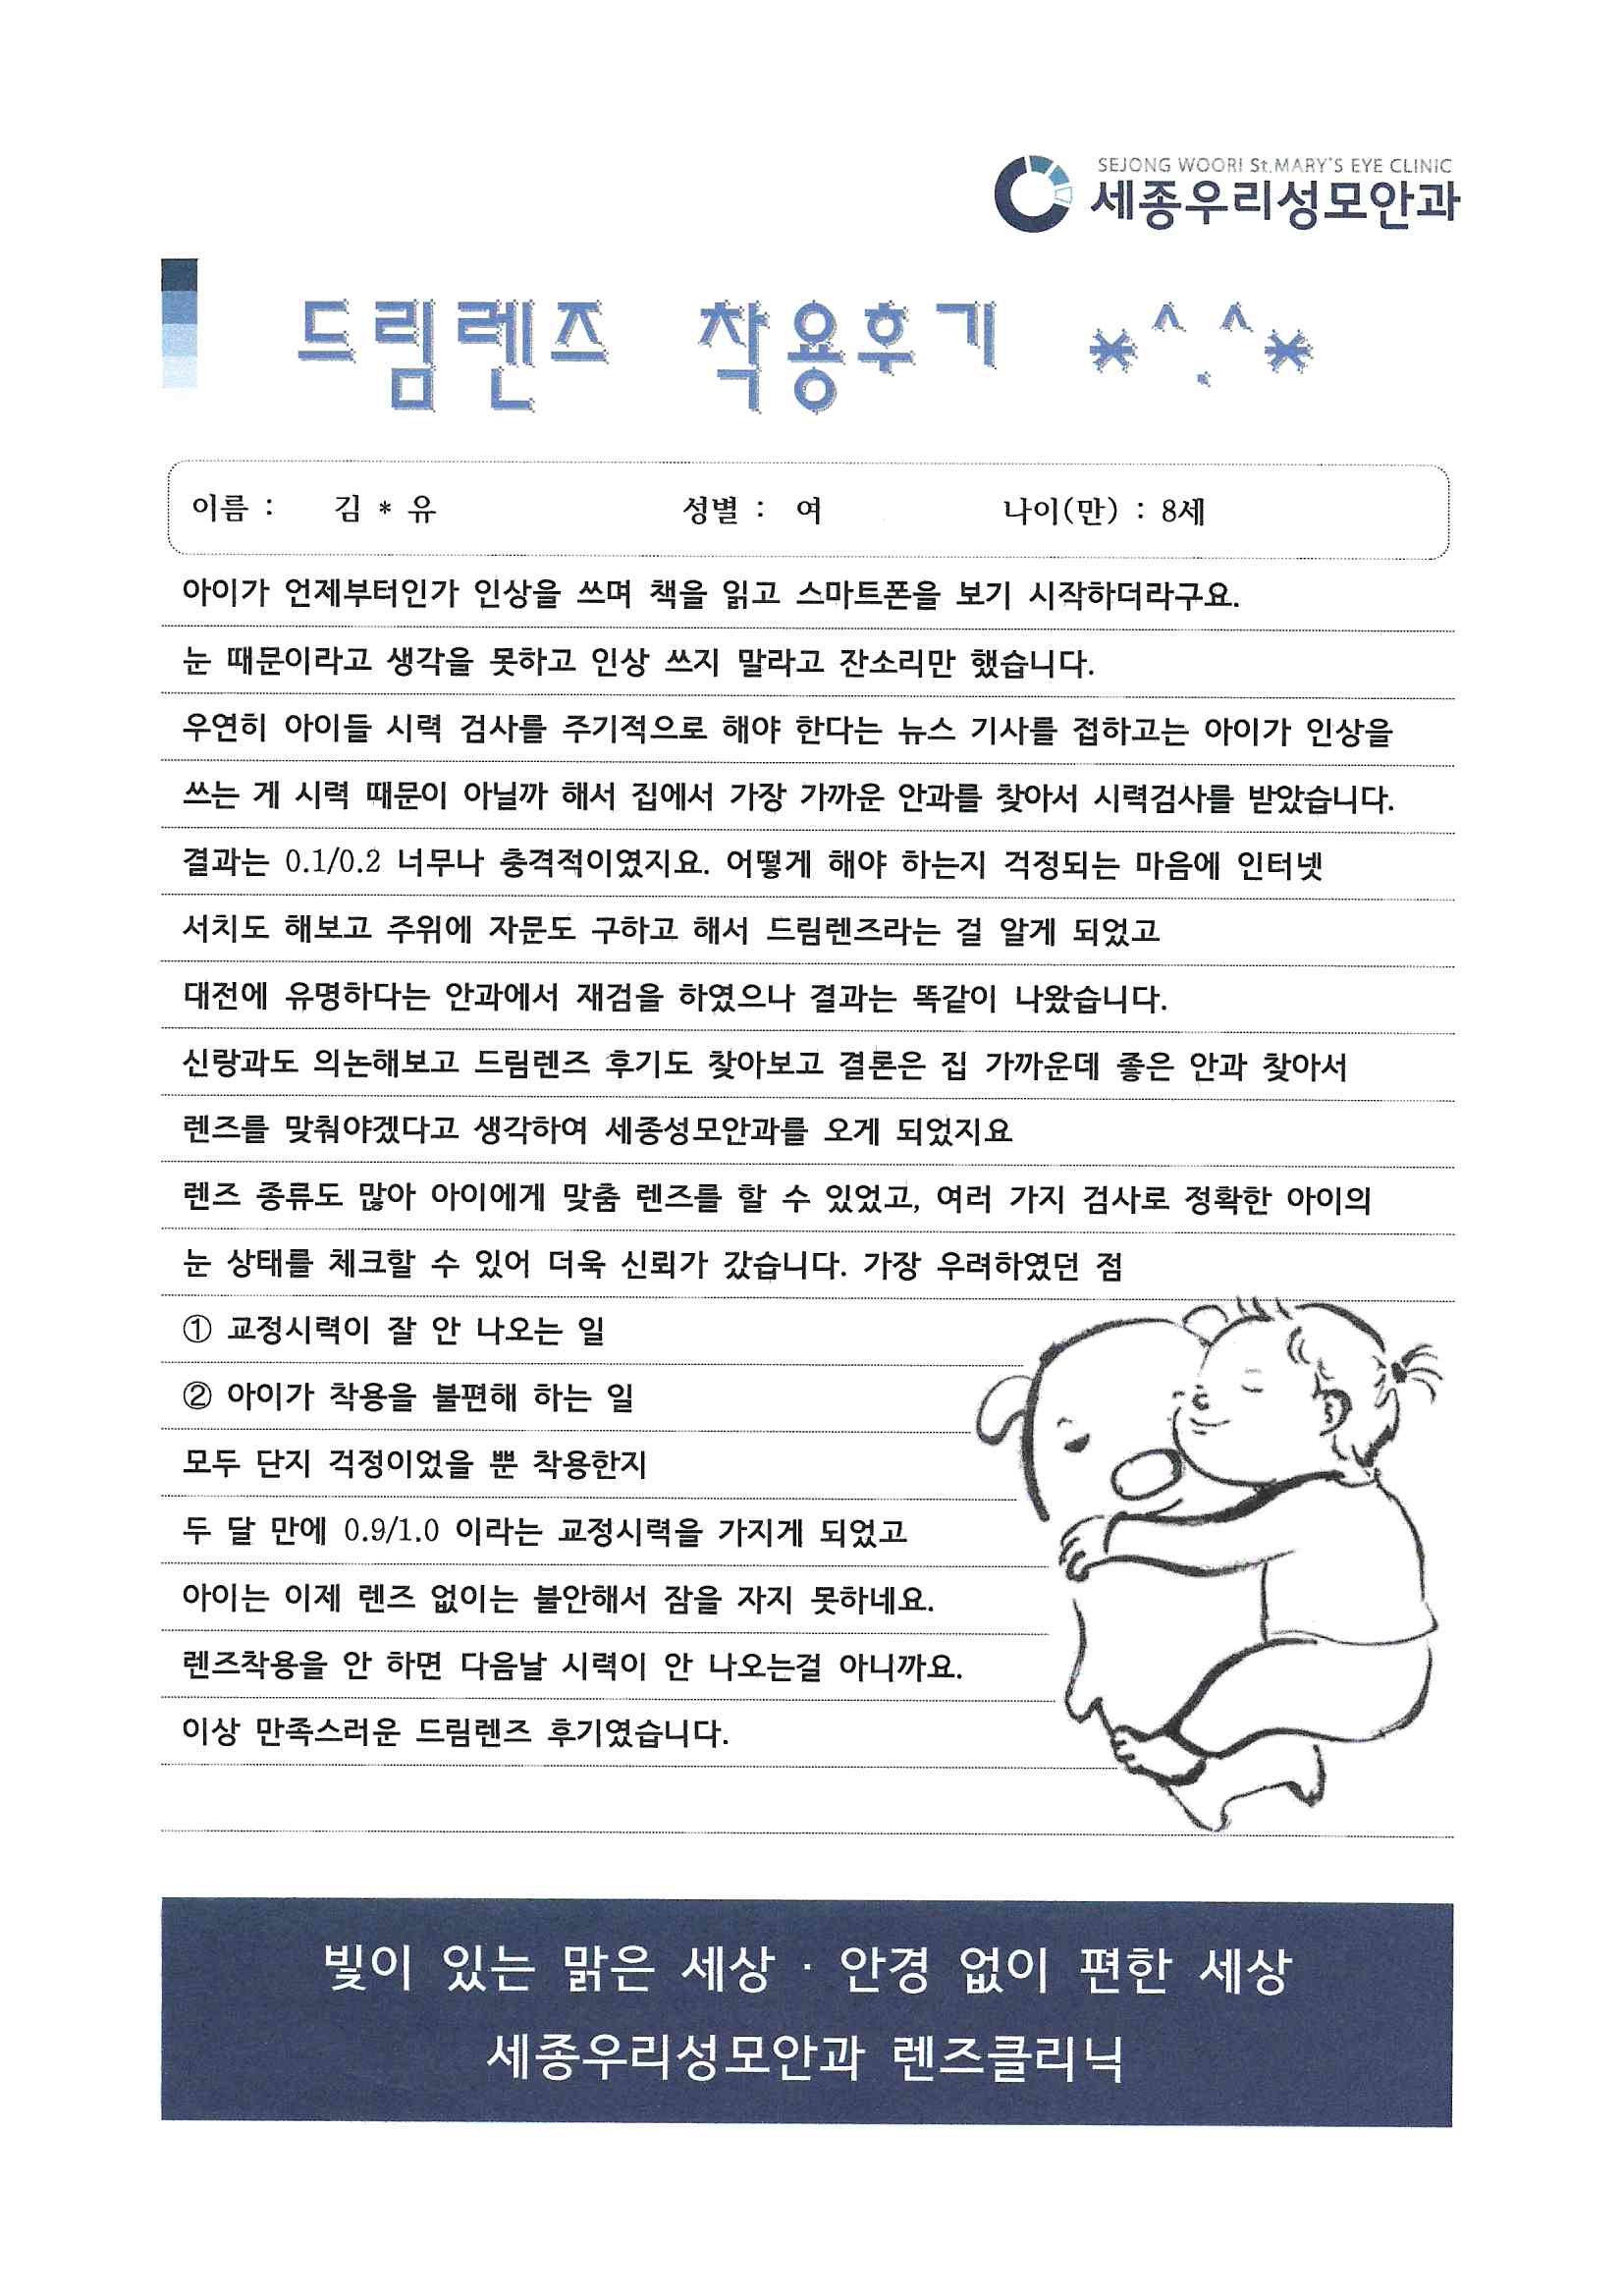 SEJONG WOORI St.MARY'S EYE CLINIC
세종우리성모안과
드림렌즈 착용후기 *^.^*
이름 : 김 * 유 성별 : 여 나이(만) : 8세
아이가 언제부터인가 인상을 쓰며 책을 읽고 스마트폰을 보기 시작하더라구요.
눈 때문이라고 생각을 못하고 인상 쓰지 말라고 잔소리만 했습니다.
우연히 아이들 시력 검사를 주기적으로 해야 한다는 뉴스 기사를 접하고는 아이가 인상을
쓰는 게 시력 때문이 아닐까 해서 집에서 가장 가까운 안과를 찾아서 시력검사를 받았습니다.
결과는 0.1/0.2 너무나 충격적이였지요. 어떻게 해야 하는지 걱정되는 마음에 인터넷
서치도 해보고 주위에 자문도 구하고 해서 드림렌즈라는 걸 알게 되었고
대전에 유명하다는 안과에서 재검을 하였으나 결과는 똑같이 나왔습니다.
신랑과도 의논해보고 드림렌즈 후기도 찾아보고 결론은 집 가까운데 좋은 안과 찾아서
렌즈를 맞춰야겠다고 생각하여 세종성모안과를 오게 되었지요
렌즈 종류도 많아 아이에게 맞춤 렌즈를 할 수 있었고, 여러 가지 검사로 정확한 아이의
눈 상태를 체크할 수 있어 더욱 신뢰가 갔습니다. 가장 우려하였던 점
① 교정시력이 잘 안 나오는 일
② 아이가 착용을 불편해 하는 일
모두 단지 걱정이었을 뿐 착용한지
두 달 만에 0.9/1.0 이라는 교정시력을 가지게 되었고
아이는 이제 렌즈 없이는 불안해서 잠을 자지 못하네요.
렌즈착용을 안 하면 다음날 시력이 안 나오는걸 아니까요.
이상 만족스러운 드림렌즈 후기였습니다.
빛이 있는 맑은 세상 · 안경 없이 편한 세상
세종우리성모안과 렌즈클리닉